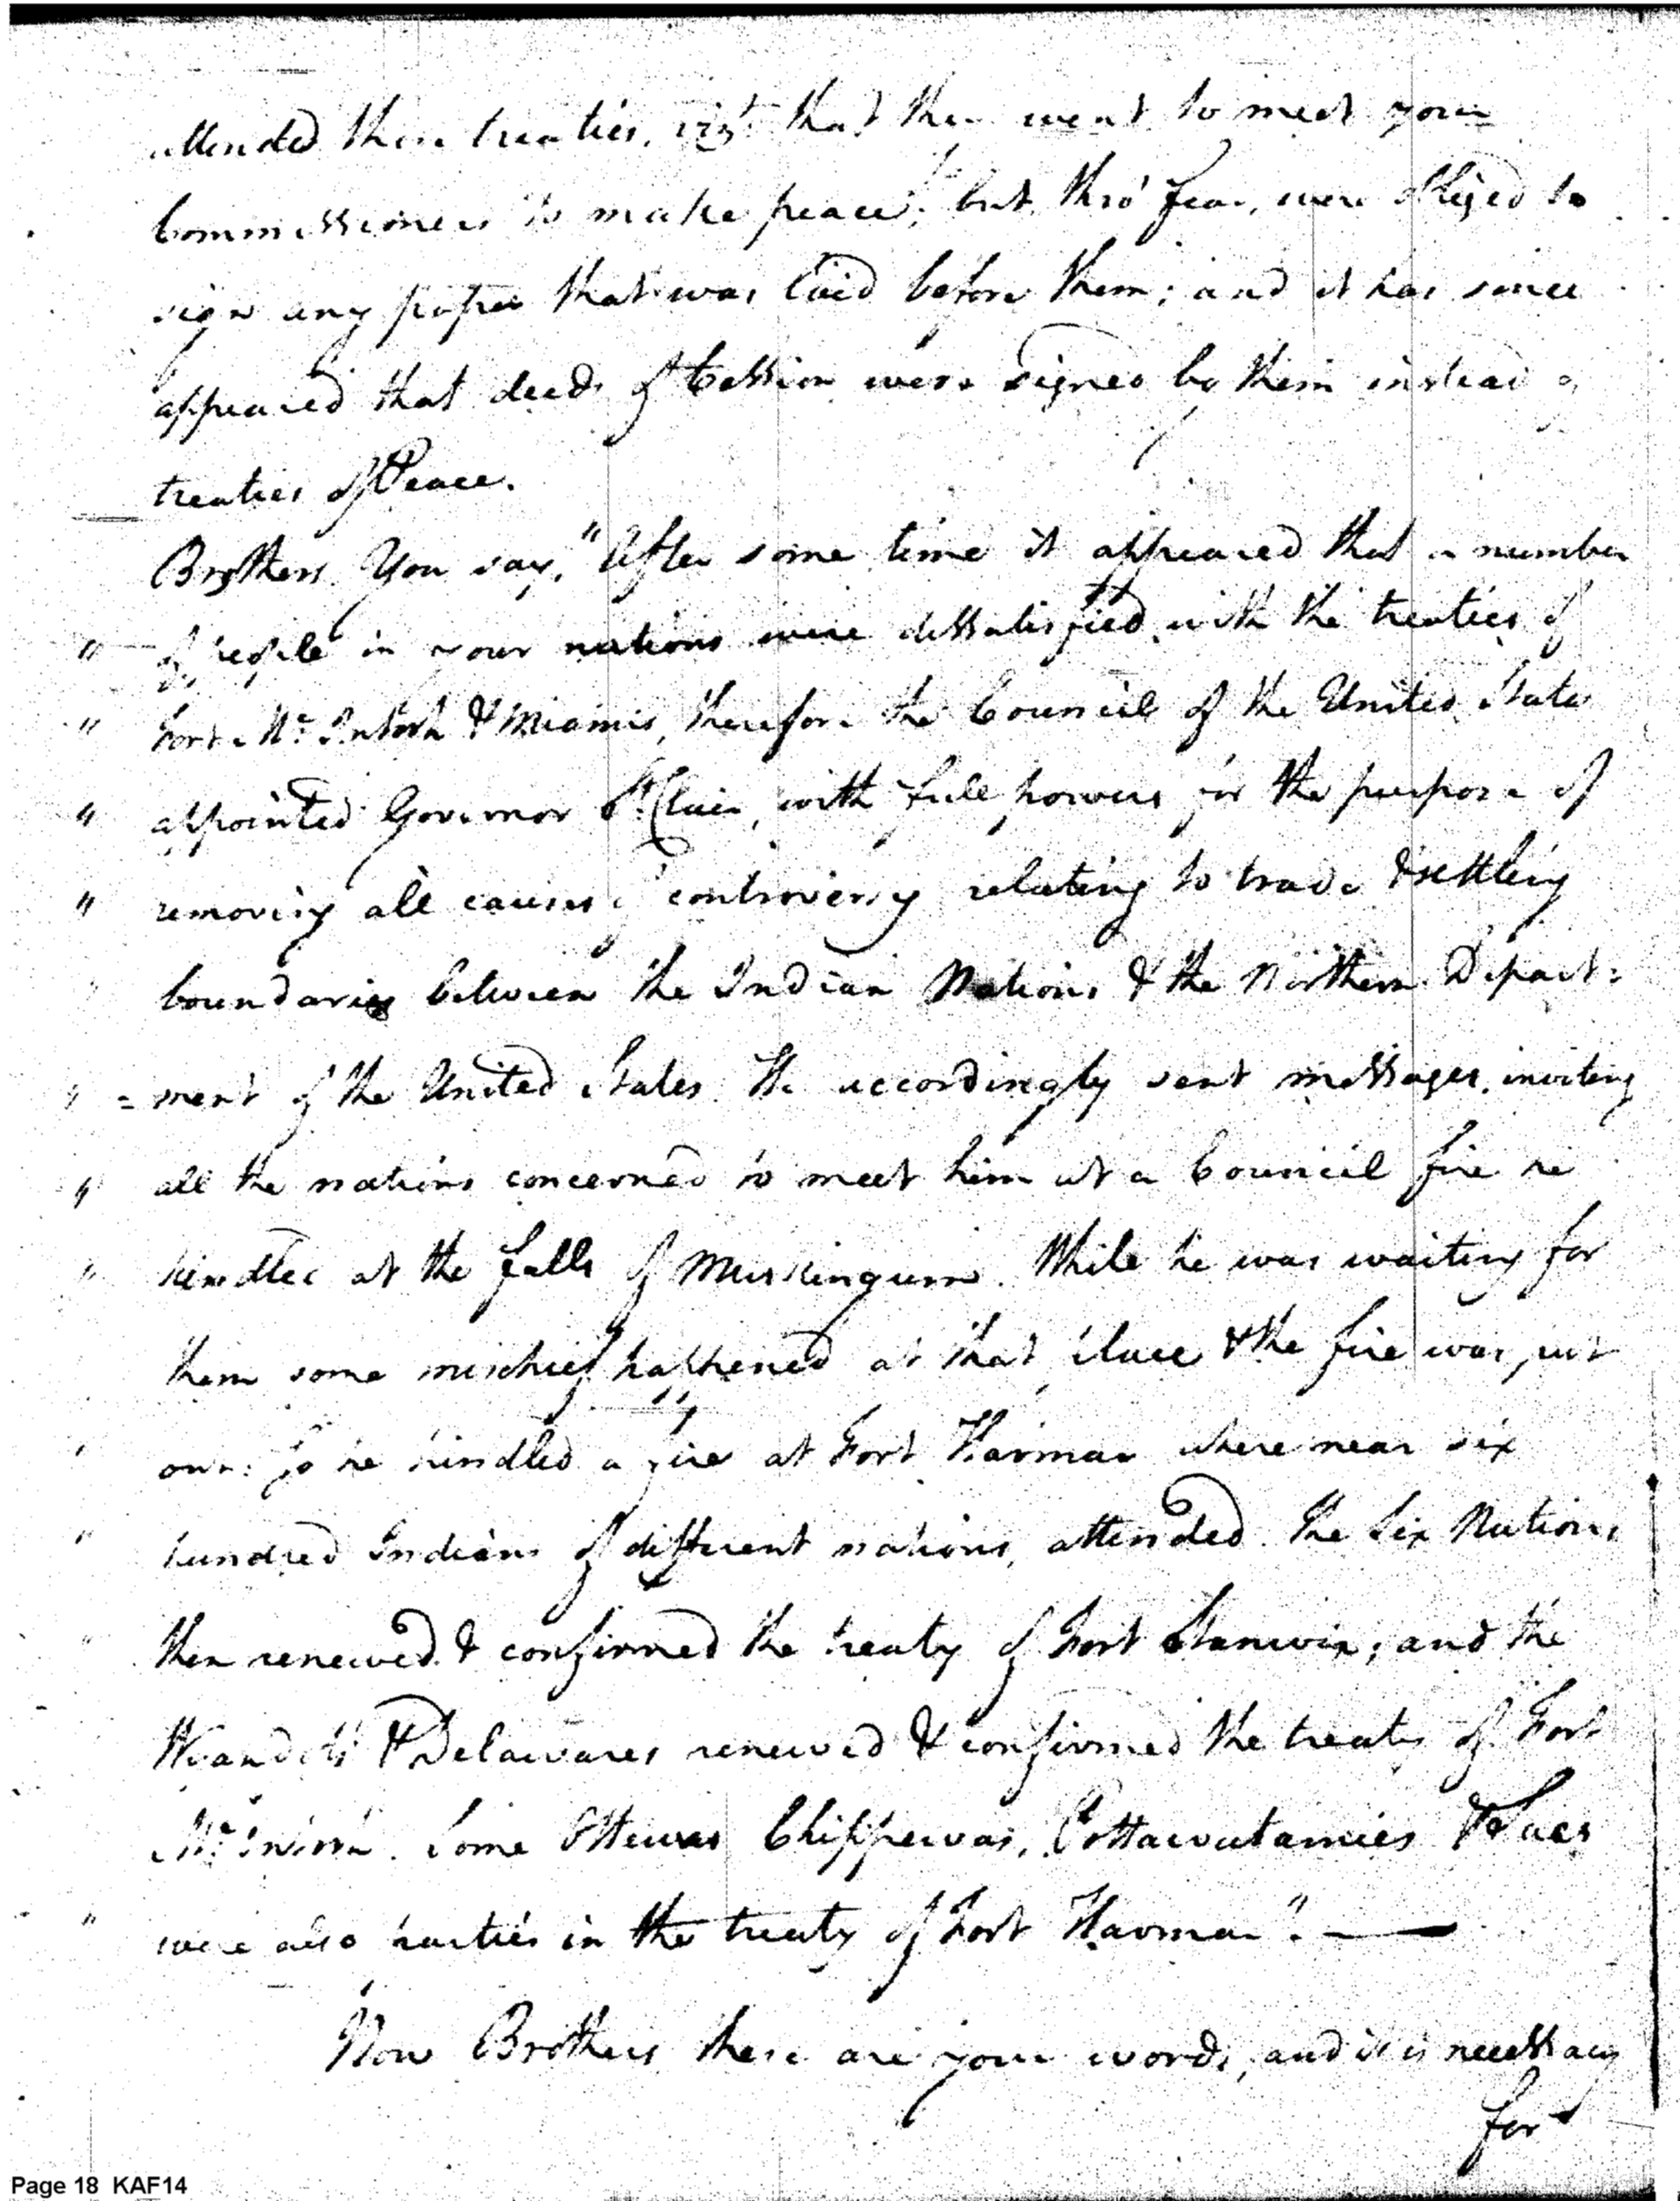 attended these treaties, vizt. that they went to meet your
Commissioners to make peace; but, thro' fear, were obliged to
sign any paper that was laid before them; and it has since
appeared that deeds of Cession were signed by them instead of
treaties of Peace.
Brothers. You say, "After some time it appeared that a number
" of people in your nations were dissatisfied with the treaties of
" Fort McIntosh & Miamis, therefore the Council of the United States
" appointed Governor St. Clair, with full powers for the purpose of
" removing all causes of controversy relating to trade & settling
" boundaries between the Indian Nations & the Northern Depart=
" =ment of the United States. He accordingly sent messages, inviting
" all the nations concerned to meet him at a Council fire he
" kindled at the falls of Muskingum. While he was waiting for
them some mischief happened at that place & the fire was put
" out: so he kindled a fire at Fort Harmar where near six
" hundred Indians of different nations, attended. The Six Nations
" then renewed & confirmed the treaty of Fort Stanwix; and the
Wyandots & Delawares renewed & confirmed the treaty of Fort
McIntosh. Some Ottawas Chippewas, Pottawatamies & Sacs
" were also parties in the treaty of Fort Harmar". —
Now Brothers these are your words, and it is necessary
for
Page 18 KAF14